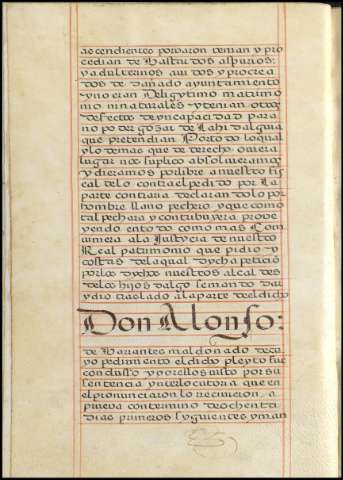 ascendientes por varon venian y pro
cedian de Bastardos aspurios:
y adulterinos avidos y procrea
dos de dañado ayuntamiento
y no eran De ligytimo matrimo
nio ni naturales y tenian otros
defectos de yncapacidad para
no poder gozar de La hidalguia
que pretendian Por todo lo qual
y lo demas que de derecho oviera
lugar nos suplico absolvieramos
y dieramos por libre a nuestro fis
cal de lo contra el pedido por La
parte contraria declarandolo por
hombre llano pechero y que como
tal pechara y contribuyera prove
yendo en todo como mas Con
viniera a la Justycia de nuestro
Real patrimonio que pidio y
costas de la qual dycha peticio
por los dychos nuestros alcaldes
de los hijos dalgo se mando dar
y dio traslado a la parte del dicho
Don Alonso:
de Barantes maldonado de cu
yo pedimiento el dicho pleyto fue
concluso y por ellos visto por su
sentencia ynterlocutoria que en
el pronunciaron lo recivieron a
prueva con termino de ochenta
dias primeros syguientes y man